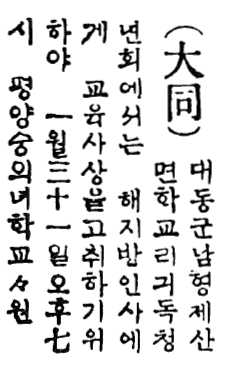 (大同) 대동군남형제산
면학교리긔독청
년회에서는 해지방인사에
게 교육사상을고취하기위
하야 一월三十一일오후七
시 평양숭의녀학교々원